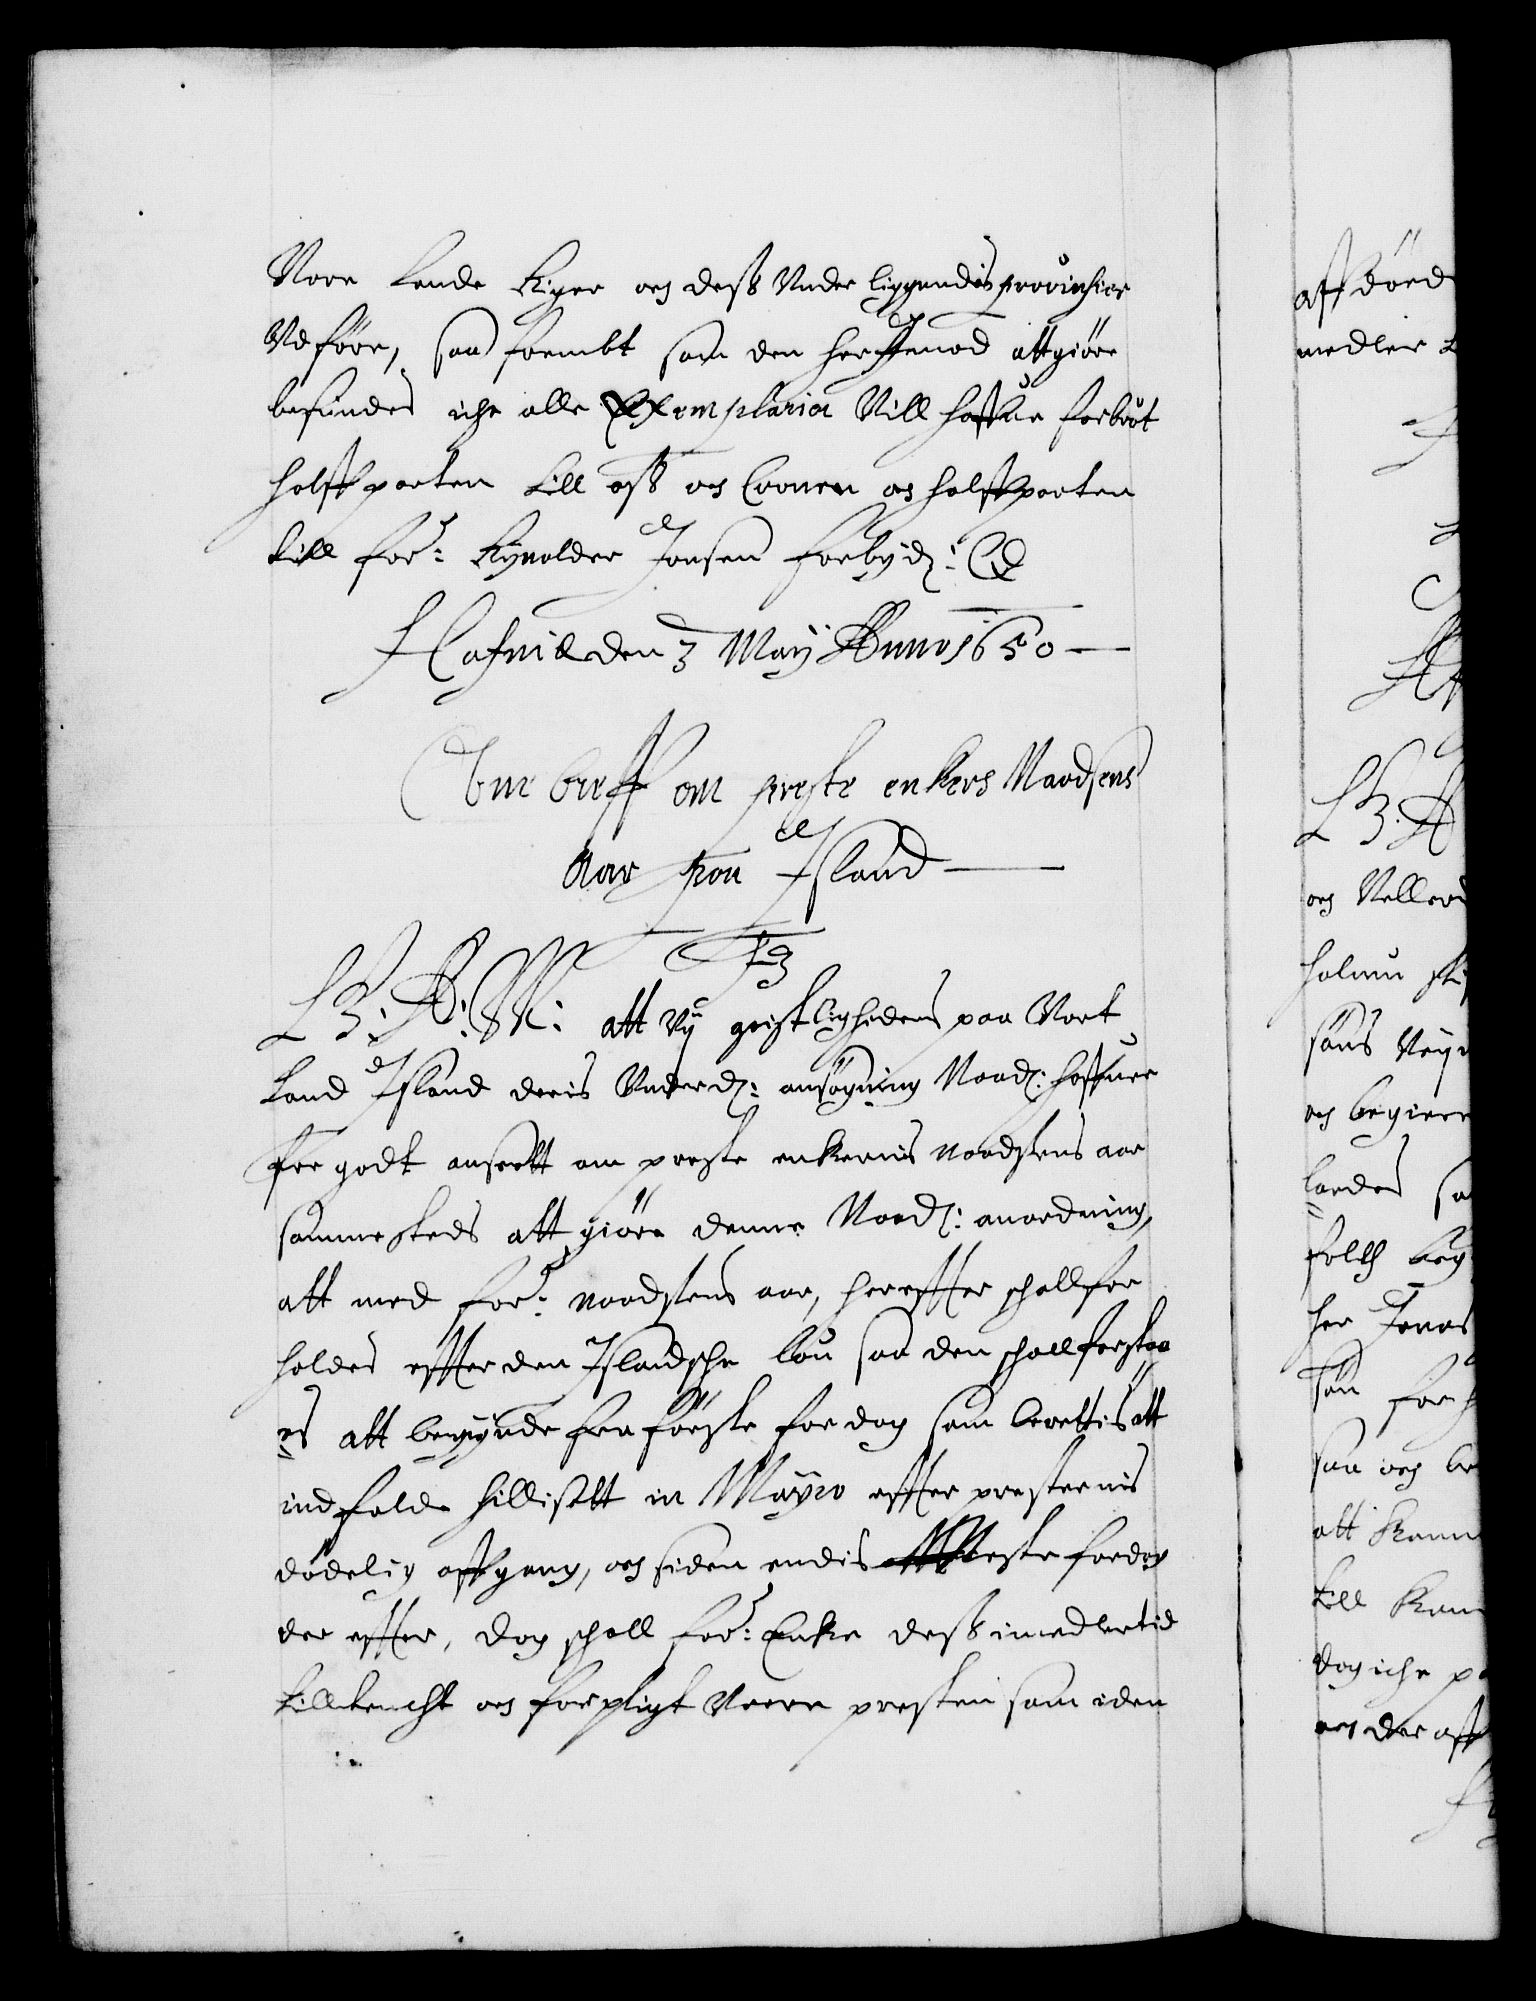 Vore Lande Riger og dess Under liggendis provinsier
Ud före, saa frembt som den her Imod att giöre
befindes iche alle Exemplaria Vill haffue forbrut
halff parten till oss og Cronen og halffparten
till for: Rynolder Jonsen forbydj: Cx
Hafniæ den 3 Maij Anno 1650
Obne breff om preste enkers Naadsens
Aar paa Island
F3
L B: A: W: att Vij geistlighedens paa Vort
Land Island deris Underdj: ansögning Naadj: haffuer
for godt anseett om preste enkernis naadsens aar
sammesteds att giöre denne Naadj: anordning,
att med for: naadsens aar, hereffter schall for
holdes effter den Islandsche lou saa den schall forstaa
es att begynde fra förste fardag som berettis att
indfalde hillisett in Mayo effter presternis
dödelig affgang, og siden endis neste fardag
der effter, dog schall for: Enke dess imedlertid
till tencht og forpligt Veere presten som i den
affdöed
medler
L B: A
og Veller
holum sti
söns Veÿ
og begier
lerdes sa
folch beg
her Jonas
sön for
saa og be
att kann
till kam
dog iche p
og der aff